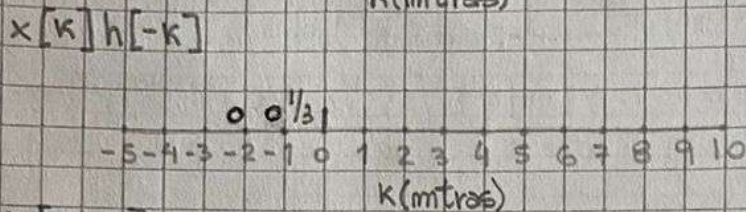 x[k] h[-k]
0 0 1/3
-5 -4 -3 -2 -1 0 1 2 3 4 5 6 7 8 9 10
k(mtras)